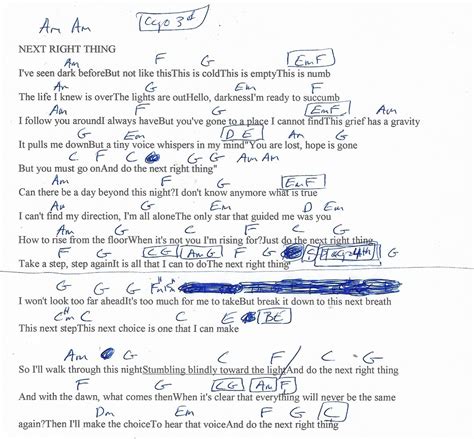 Am Am Capo 3rd
NEXT RIGHT THING
Am F G Em F
I've seen dark beforeBut not like thisThis is coldThis is emptyThis is numb
Am Am G F
The life I knew is overThe lights are outHello, darknessI'm ready to succumb
Am F G Em F Am
I follow you aroundI always haveBut you've gone to a place I cannot findThis grief has a gravity
G Em D E Am G
It pulls me downBut a tiny voice whispers in my mind"You are lost, hope is gone
C F C G G Am Am
But you must go onAnd do the next right thing"
Am F G Em F
Can there be a day beyond this night?I don't know anymore what is true
Am G Em D Em
I can't find my direction, I'm all aloneThe only star that guided me was you
Am G C F C
How to rise from the floorWhen it's not you I'm rising for?Just do the next right thing
F G C G Am G F G C G
Take a step, step againIt is all that I can to doThe next right thing
G G G
I won't look too far aheadIt's too much for me to takeBut break it down to this next breath
Cm C C E B E
This next stepThis next choice is one that I can make
Am G C F C G
So I'll walk through this nightStumbling blindly toward the lightAnd do the next right thing
F G C G Am F
And with the dawn, what comes thenWhen it's clear that everything will never be the same
Dm F G C
again?Then I'll make the choiceTo hear that voiceAnd do the next right thing